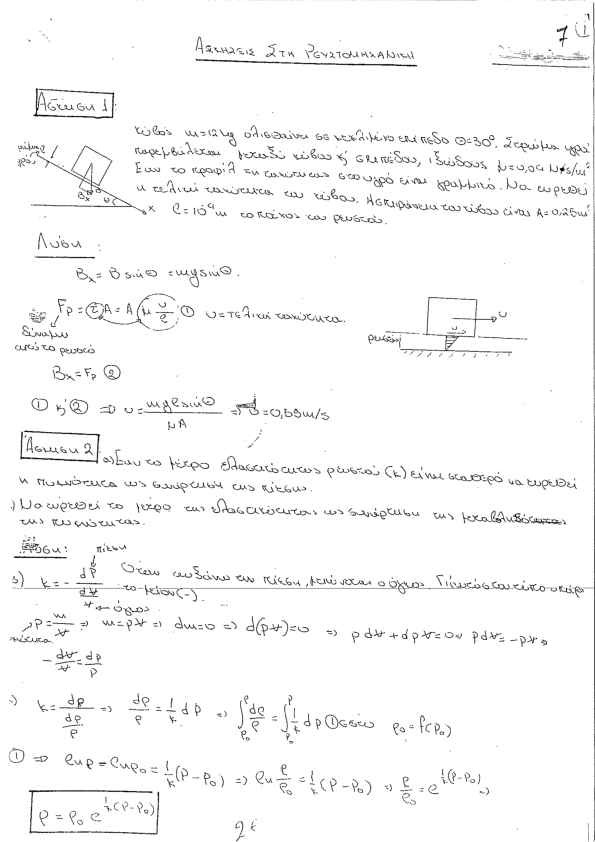 7 (1
Ασκησεις Στη Ρευστομηχανική
Άσκηση 1:
Κύβος m=12kg ολισθαίνει σε κεκλιμένο επίπεδο Θ=30°. Στρώμα υγρού
παρεμβάλεται μεταξύ κύβου κ' επιπέδου, ιξώδους μ=0,04 N·s/m²
Εαν το προφίλ της ταχύτητας στο υγρό είναι γραμμικό. Να ευρεθεί
η τελική ταχύτητα του κύβου. Η επιφάνεια του κύβου είναι A=0,25m²
ℓ=10⁻⁴m το πάχος του ρευστού.
Bx
x
Λύση :
Bx = B sinθ = mg sinθ.
Fρ = τA = A μ υ/ℓ ① υ=τελική ταχύτητα.
δύναμη
από το ρευστό
υ
ρευστό
Bx = Fρ ②
① κ' ② ⇒ υ = mgℓsinθ/μA ⇒ υ=0,59m/s
Άσκηση 2
α) Εαν το μέτρο ελαστικότητας ρευστού (k) είναι σταθερό να ευρεθεί
η πυκνότητα ως συνάρτηση της πίεσης.
) Να ευρεθεί το μέτρο της ελαστικότητας ως συνάρτηση της
της πυκνότητας.
Λύση:
πίεση
k = - dP/(dV/V) Όταν αυξάνω την πίεση, μειώνεται ο όγκος. Γι' αυτό στον τύπο υπάρχ
το μείον (-).
← όγκος
ρ = m/V ⇒ m=ρV ⇒ dm=0 ⇒ d(ρV)=0 ⇒ ρdV+dρV=0
- dV/V = dρ/ρ
k = dp/(dρ/ρ) ⇒ dρ/ρ = 1/k dP ⇒ ∫ dρ/ρ = ∫ 1/k dp ① εστω ρ₀=f(P₀)
① ⇒ ℓnρ - ℓnρ₀ = 1/k (P-P₀) ⇒ ℓn ρ/ρ₀ = 1/k (P-P₀) ⇒ ρ/ρ₀ = e^{1/k(P-P₀)} ⇒
ρ = ρ₀ e^{1/k(P-P₀)}